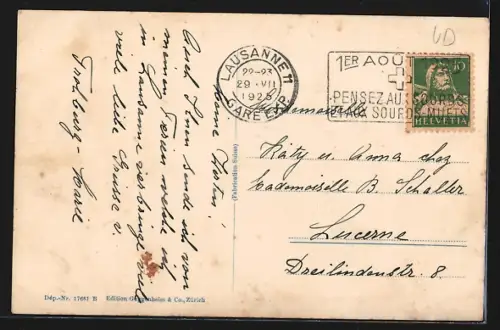 Meine Besten!
Auch Ihnen sende ich von
meinen Ferien welche ich
in Lausanne verbringe viel
viele liebe Grüsse v.
Dép.-Nr. 17661 B Edition Guggenheim & Co., Zürich
(Fabrication Suisse)
LAUSANNE 11
22-23
29.VII
GARE EXP.
1ER AOU
PENSEZ AUX SOURDS
ET AUX SOURDS-MUETS
10
HELVETIA
UD
Mademoiselle
Käty u. Anna chez
Mademoiselle B. Schaller
Lucerne
Dreilindenstr. 8.